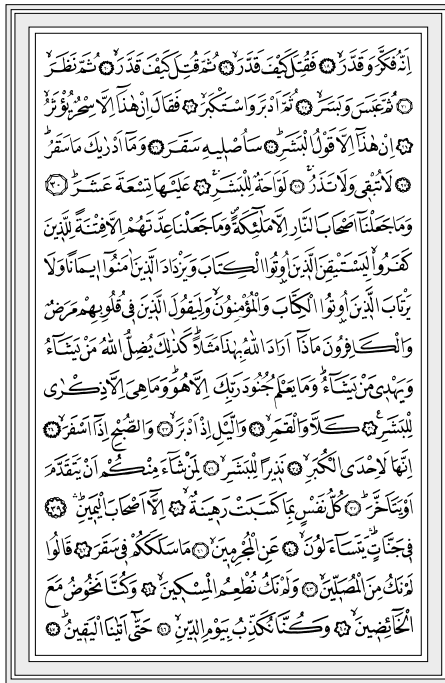 اِنَّهُ فَكَّرَ وَقَدَّرَۙ ﴿١٨﴾ فَقُتِلَ كَيْفَ قَدَّرَۙ ﴿١٩﴾ ثُمَّ قُتِلَ كَيْفَ قَدَّرَۙ ﴿٢٠﴾ ثُمَّ نَظَرَۙ
﴿٢١﴾ ثُمَّ عَبَسَ وَبَسَرَۙ ﴿٢٢﴾ ثُمَّ اَدْبَرَ وَاسْتَكْبَرَۙ ﴿٢٣﴾ فَقَالَ اِنْ هٰذَٓا اِلَّا سِحْرٌ يُؤْثَرُۙ
﴿٢٤﴾ اِنْ هٰذَٓا اِلَّا قَوْلُ الْبَشَرِۜ ﴿٢٥﴾ سَاُصْلٖيهِ سَقَرَ ﴿٢٦﴾ وَمَٓا اَدْرٰيكَ مَا سَقَرُۜ
﴿٢٧﴾ لَا تُبْقٖى وَلَا تَذَرُۚ ﴿٢٨﴾ لَوَّاحَةٌ لِلْبَشَرِۚ ﴿٢٩﴾ عَلَيْهَا تِسْعَةَ عَشَرَۜ ﴿٣٠﴾
وَمَا جَعَلْنَٓا اَصْحَابَ النَّارِ اِلَّا مَلٰٓئِكَةًۖ وَمَا جَعَلْنَا عِدَّتَهُمْ اِلَّا فِتْنَةً لِلَّذٖينَ
كَفَرُواۙ لِيَسْتَيْقِنَ الَّذٖينَ اُو۫تُوا الْكِتَابَ وَيَزْدَادَ الَّذٖينَ اٰمَنُٓوا اٖيمَانًا وَلَا
يَرْتَابَ الَّذٖينَ اُو۫تُوا الْكِتَابَ وَالْمُؤْمِنُونَۙ وَلِيَقُولَ الَّذٖينَ فٖى قُلُوبِهِمْ مَرَضٌ
وَالْكَافِرُونَ مَاذَٓا اَرَادَ اللّٰهُ بِهٰذَا مَثَلًاۜ كَذٰلِكَ يُضِلُّ اللّٰهُ مَنْ يَشَٓاءُ
وَيَهْدٖى مَنْ يَشَٓاءُۜ وَمَا يَعْلَمُ جُنُودَ رَبِّكَ اِلَّا هُوَۜ وَمَا هِىَ اِلَّا ذِكْرٰى
لِلْبَشَرِ ﴿٣١﴾ كَلَّا وَالْقَمَرِۙ ﴿٣٢﴾ وَالَّيْلِ اِذْ اَدْبَرَۙ ﴿٣٣﴾ وَالصُّبْحِ اِذَٓا اَسْفَرَۙ ﴿٣٤﴾
اِنَّهَا لَاِحْدَى الْكُبَرِۙ ﴿٣٥﴾ نَذٖيرًا لِلْبَشَرِۙ ﴿٣٦﴾ لِمَنْ شَٓاءَ مِنْكُمْ اَنْ يَتَقَدَّمَ
اَوْ يَتَاَخَّرَۜ ﴿٣٧﴾ كُلُّ نَفْسٍ بِمَا كَسَبَتْ رَهٖينَةٌۙ ﴿٣٨﴾ اِلَّٓا اَصْحَابَ الْيَمٖينِۜۛ ﴿٣٩﴾
فٖى جَنَّاتٍۜۛ يَتَسَٓاءَلُونَۙ ﴿٤٠﴾ عَنِ الْمُجْرِمٖينَۙ ﴿٤١﴾ مَا سَلَكَكُمْ فٖى سَقَرَ ﴿٤٢﴾ قَالُوا
لَمْ نَكُ مِنَ الْمُصَلّٖينَۙ ﴿٤٣﴾ وَلَمْ نَكُ نُطْعِمُ الْمِسْكٖينَۙ ﴿٤٤﴾ وَكُنَّا نَخُوضُ مَعَ
الْخَٓائِضٖينَۙ ﴿٤٥﴾ وَكُنَّا نُكَذِّبُ بِيَوْمِ الدّٖينِۙ ﴿٤٦﴾ حَتّٰٓى اَتٰينَا الْيَقٖينُۜ ﴿٤٧﴾